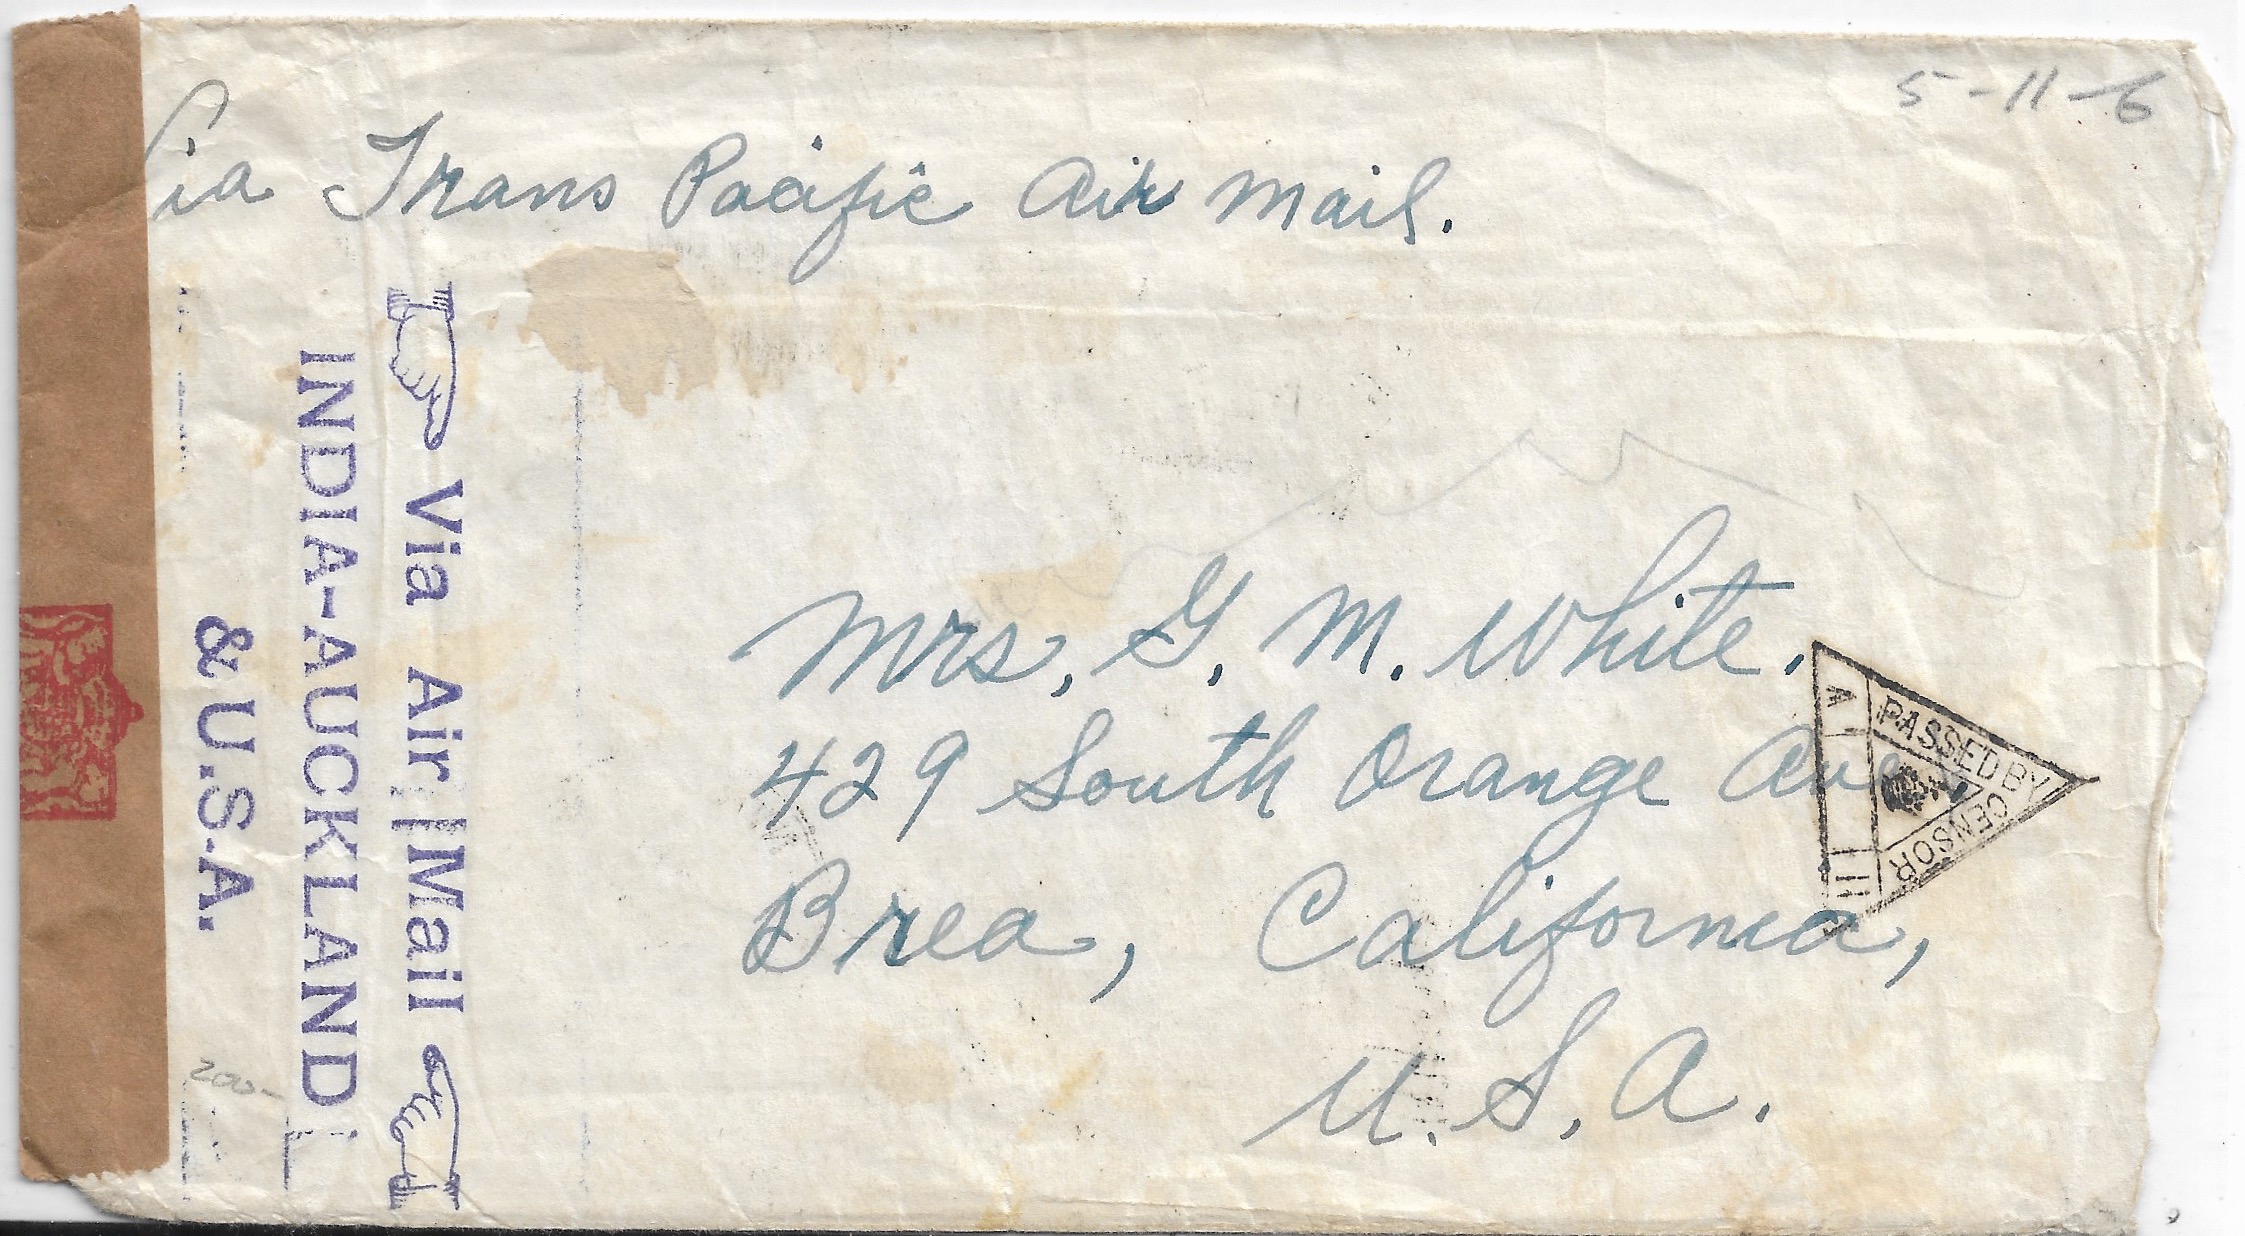 5-11-6
Via Trans Pacific Air Mail.
Via Air Mail
INDIA-AUCKLAND
& U.S.A.
Mrs. G. M. White.
429 South Orange Ave.,
Brea, California,
U. S. A.
PASSED BY
CENSOR
200-